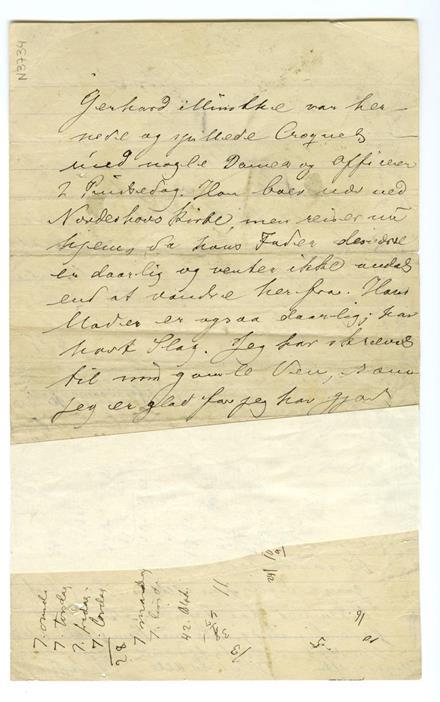 N3734
Gerhard Münthe var her
nede og spillede Croquet
med nogle Damer og Officerer
2 Pindsedag. Han boer nær ved
Norderhovs Kirke, men reiser nu
hjem, da hans Fader desværre
er daarlig og venter ikke andet
end at vandre herfra. Hans
Moder er ogsaa daarlig; har
havt Slag. Jeg har skrevet
til min gamle Ven, som
jeg er glad for jeg har gjort
7. onsd
7. torsdag
7. fredag.
7. lørdag
28
7 mandag
7.
42.
11
13
10
24
5
10
16